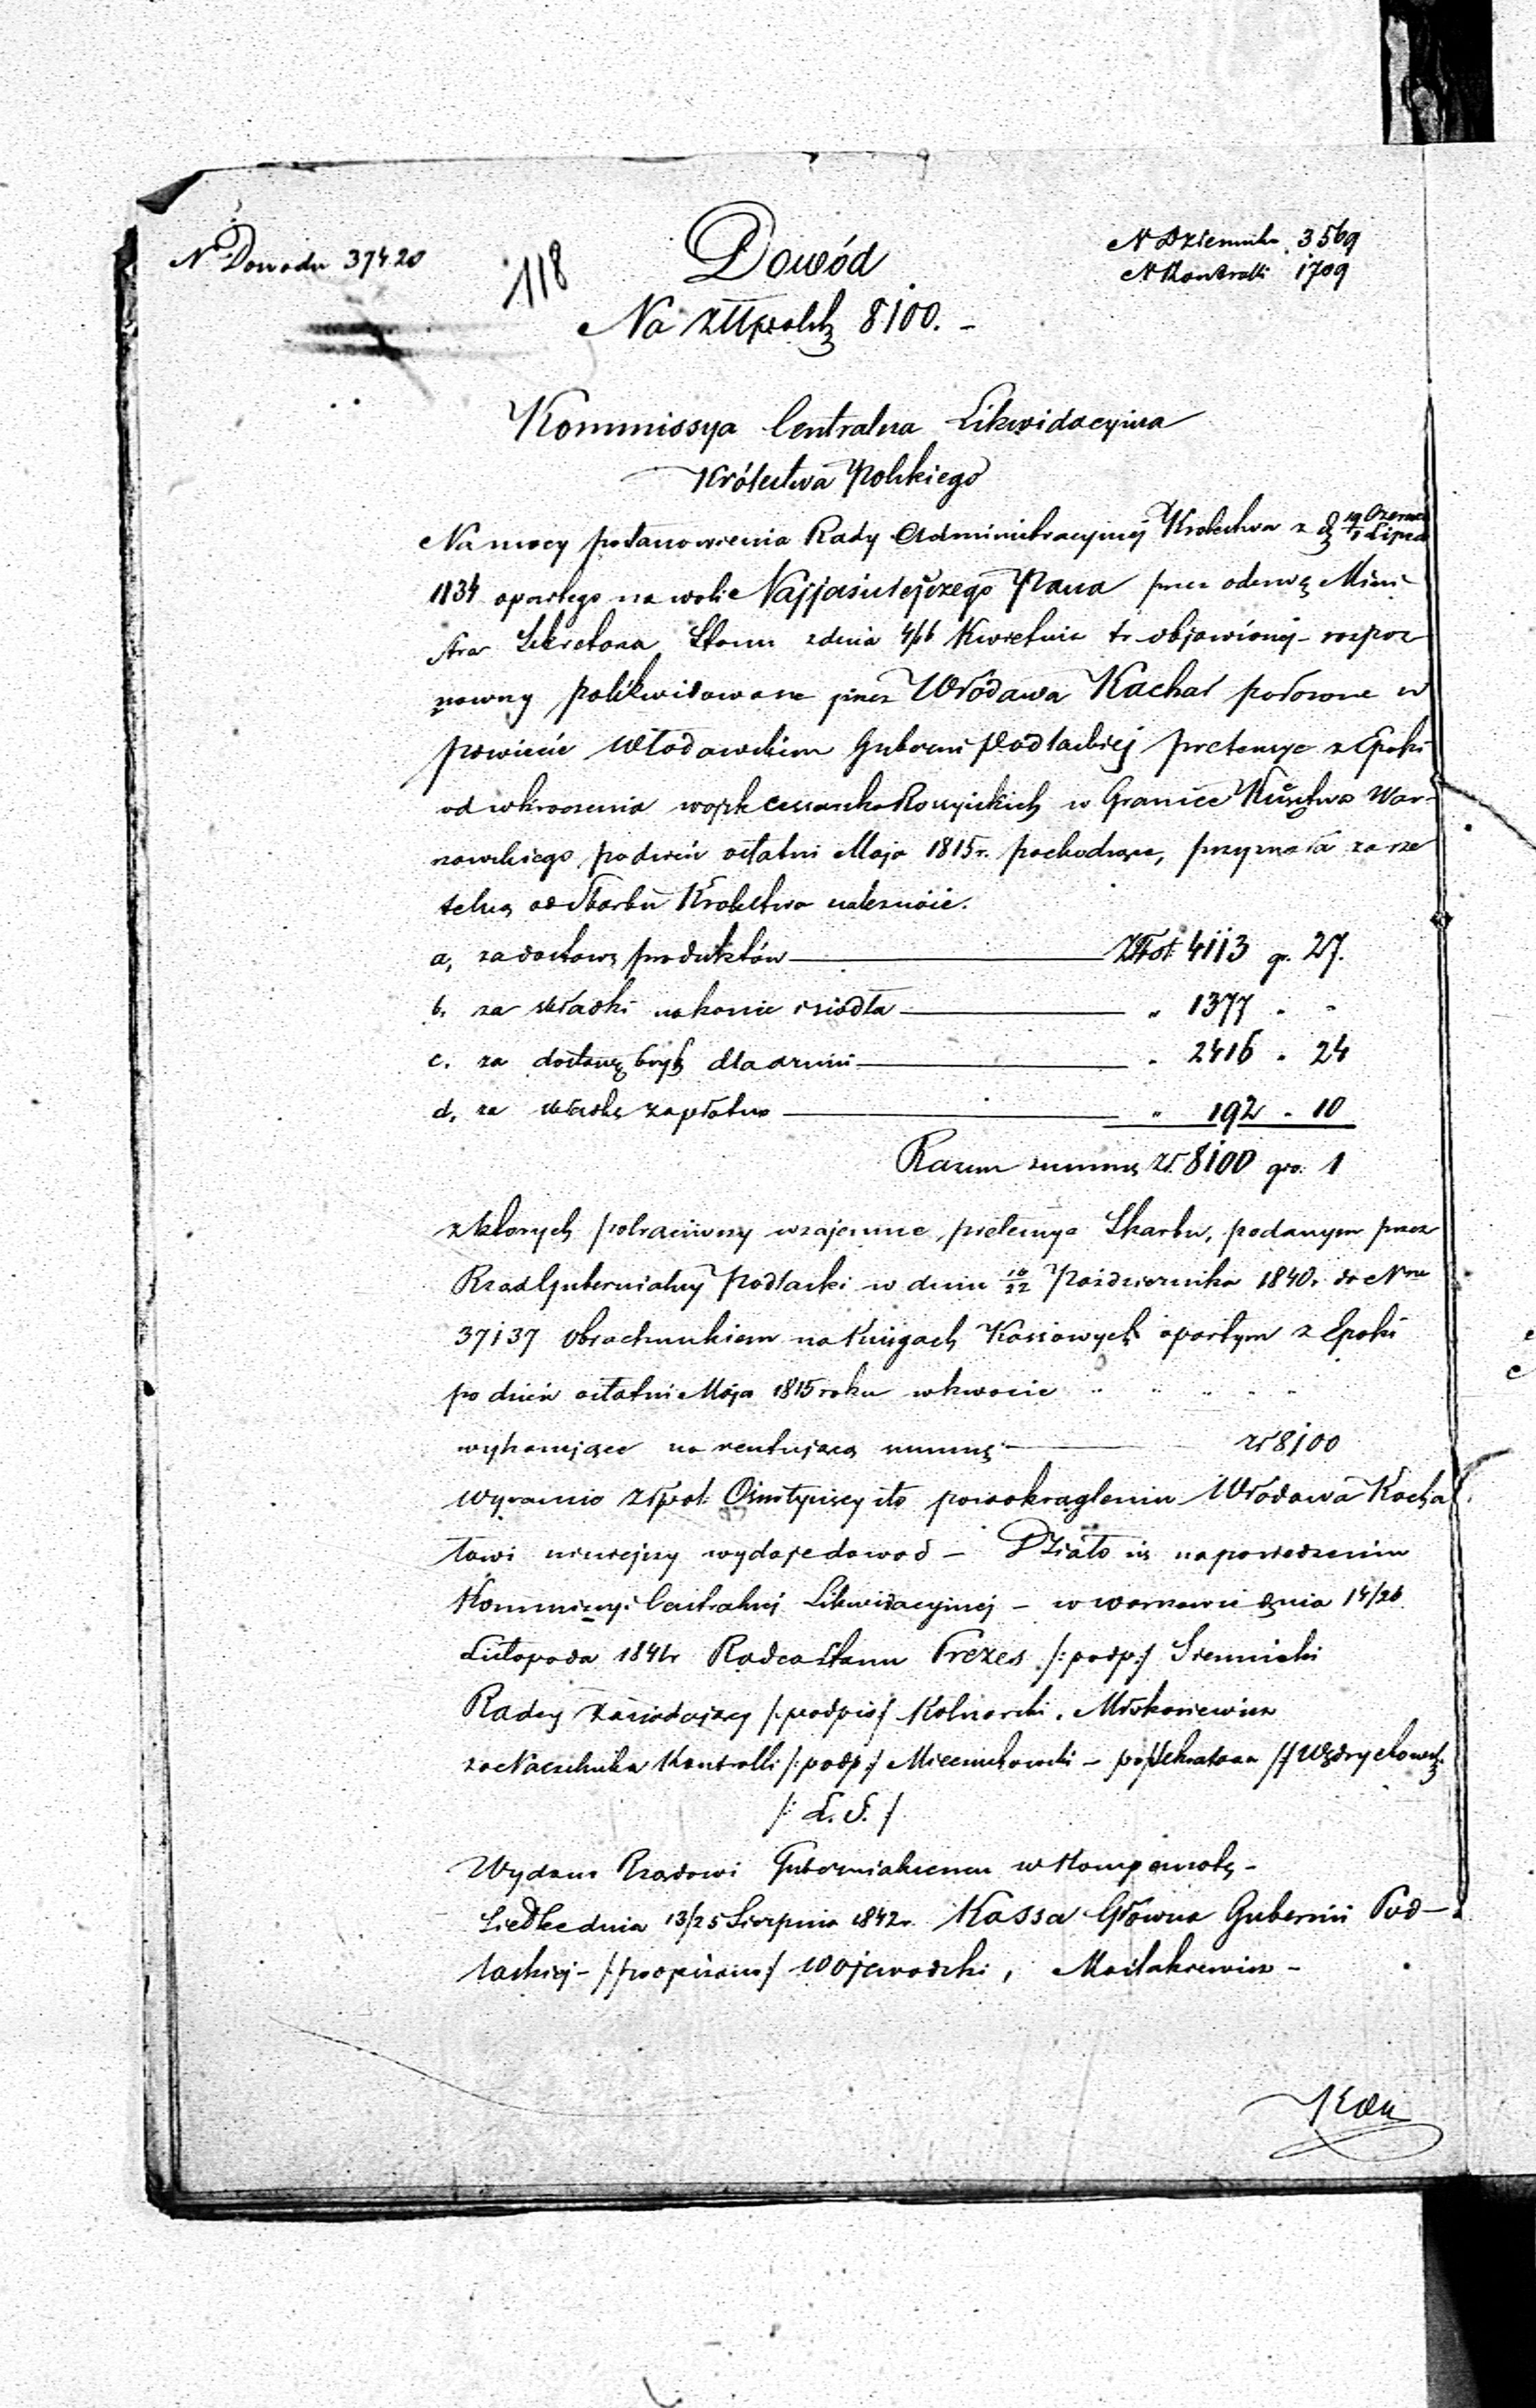 N Dowodu 37420
118
Dowód
N Dziennika 3569
N Kontrolli 1709
Na Złłpolch 8100. -
Kommissya Centralna Likwidacyina
Królestwa Polskiego
Na mocy postanowienia Rady Administracyjnej Krolestwa z d 19 Czerwca / 1 Lipca
1834 opartego na woli Najjaśniejszego Pana przez odezwę Mini-
stra Sekretarza Stanu z dnia 4/16 Kwietnia tr objawionej - rozpoz
nawszy polikwidowane przez Włodawa Kachał położone w
powiecie Włodawskim Guberni Podlaskiej pretensye z Epoki
od wkroczenia wojsk Cesarsko Rossyiskich w Granice Księstwa War-
szawskiego po dzień ostatni Maja 1815 r. pochodzące, przyznała za rze
telną od Skarbu Krolestwa należność.
a, za dostawę produktów Złpol 4113 gr. 27.
b. za składki na konie i siodła " 1377 " -
c. za dostawę bryk dla armii " 2416 " 24
d, za składkę za płótno " 192 " 10
Razem summę zł. 8100 gro. 1
z ktorych potraciwszy wzajemne pretensye Skarbu, podanym przez
Rząd Gubernialny Podlaski w dniu 10/22 Października 1840 r. do Nru
37137 Obrachunkiem na Księgach Kassowych opartym z Epoki
po dzień ostatni Maja 1815 roku w kwocie " " " " "
wykazujące na rentującą summę zł 8100
wyraznie złpol: Ośmtysięcy sto po zaokrągleniu Włodawa Kacha
łowi niniejszy wydaje dowod - Działo się na posiedzeniu
Kommissyi Centralnej Likwidacyjnej - w Warszawie dnia 14/26
Listopada 1841 r Radca Stanu Prezes /: podp:/ Siennicki
Radcy Zasiadający /: podpis/ Kolnarski, Mirkoniewicz
za Naczelnika Kontrolli /: podp:/ Miecznikowski - po Sekretarz // Wędrychowski
/: L. S. /
Wydano Rządowi Gubernialnemu w Kompensatę -
Siedlce dnia 13/25 Sierpnia 1842 r. Kassa Główna Gubernii Pod-
laskiej - /: podpisano:/ Wojewodzki,